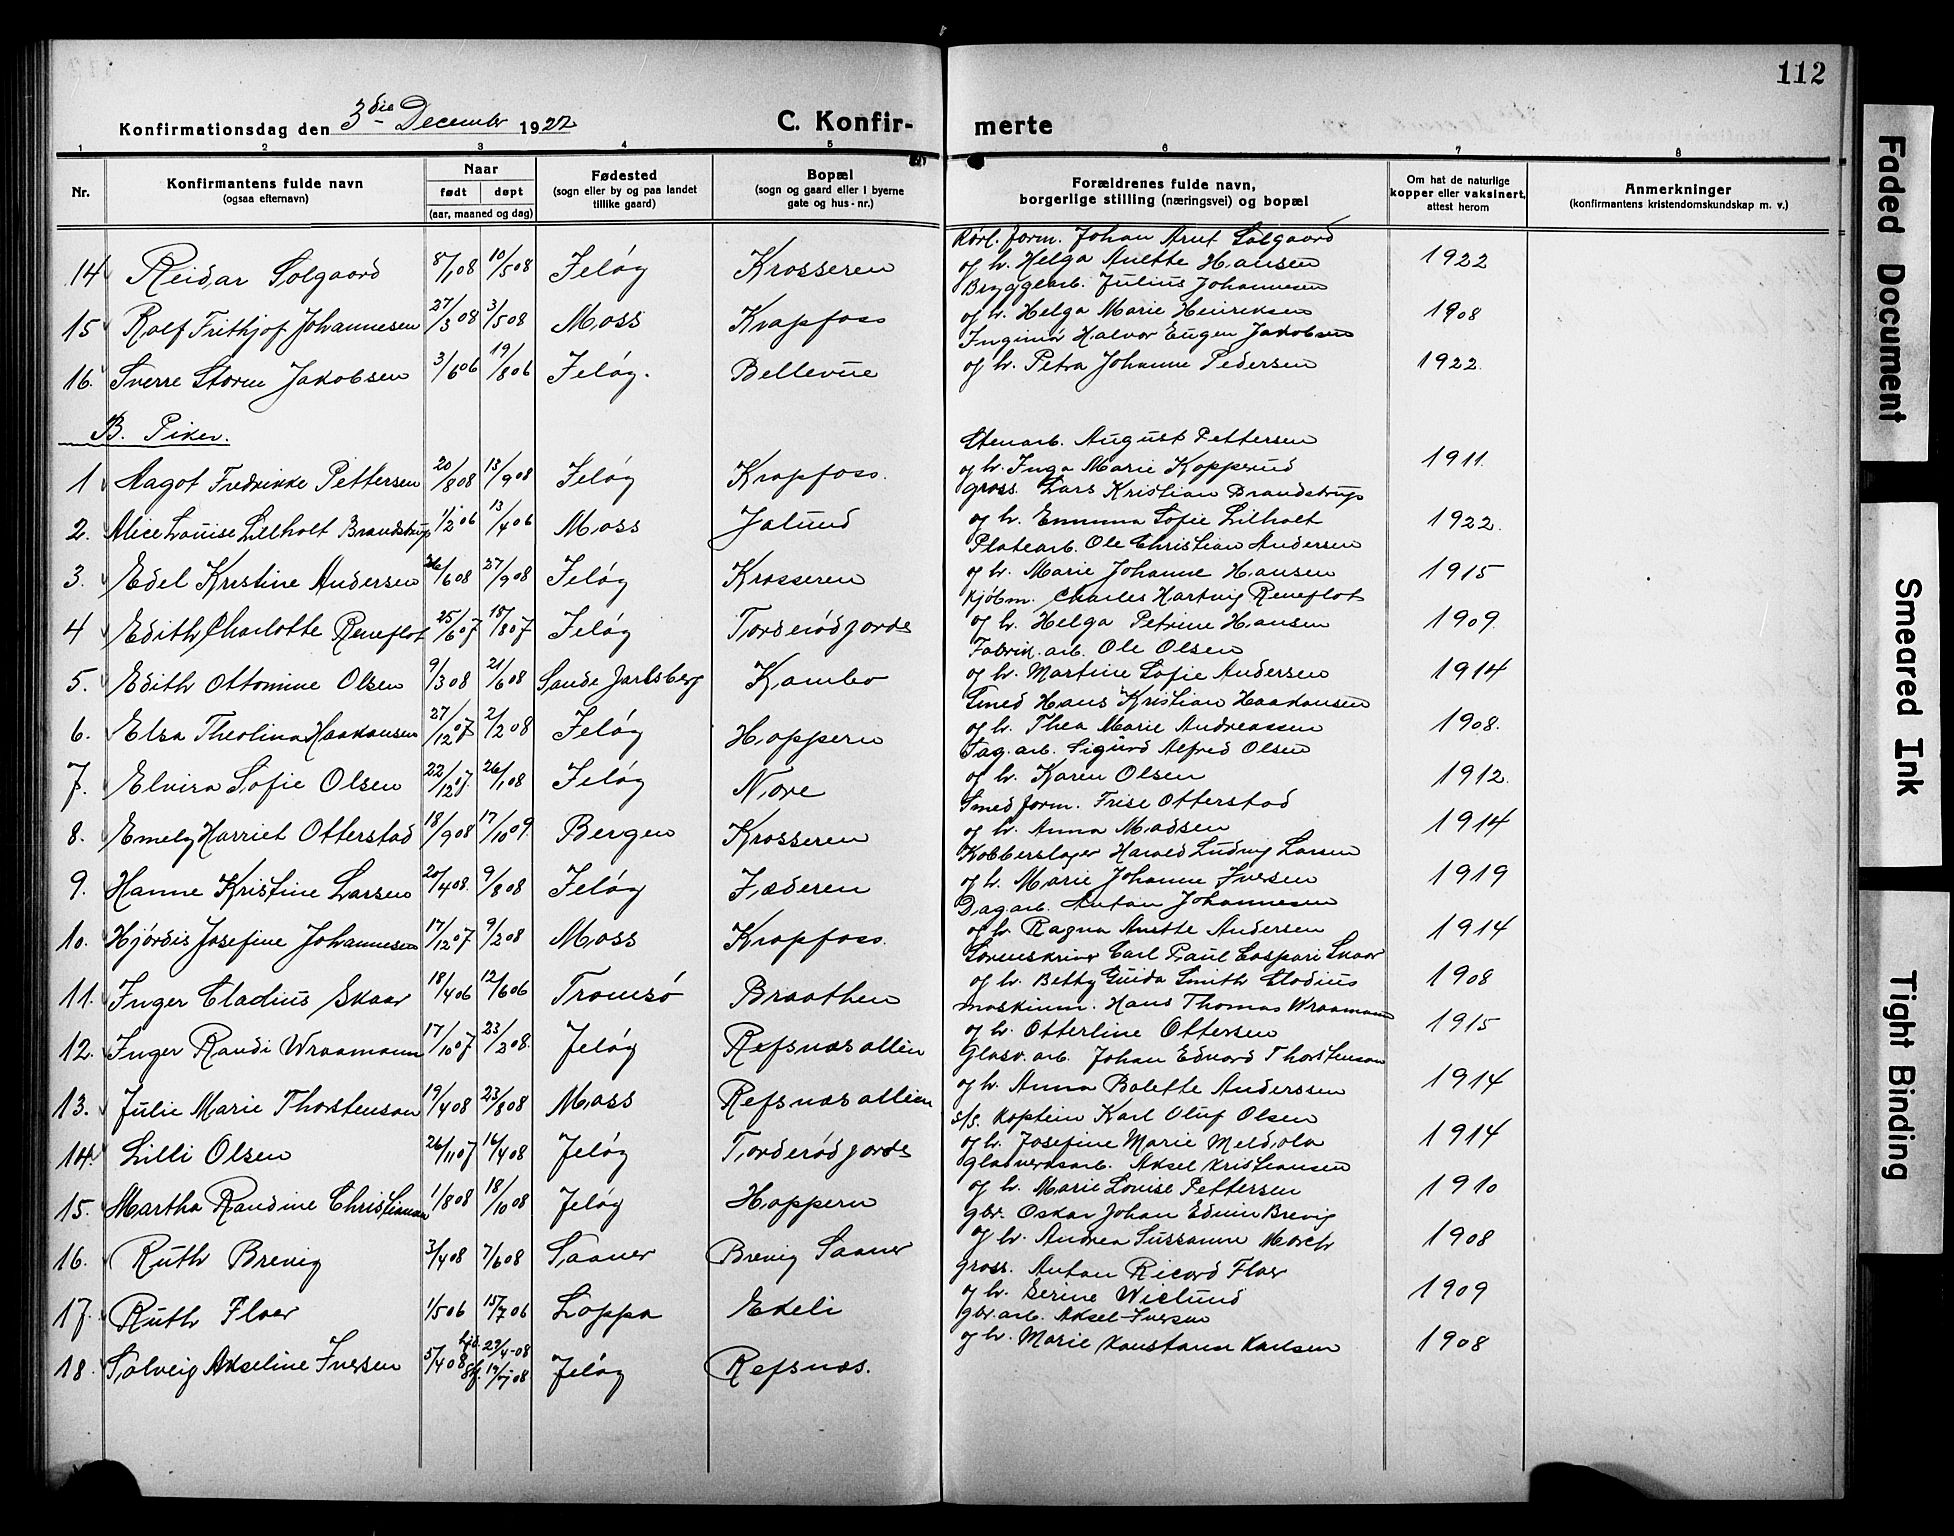 112
Konfirmationsdag den 3die December 1922
C. Konfir- merte
1 2 3 4 5 6 7 8
Nr.
Konfirmantens fulde navn
(ogsaa efternavn)
Naar
født døpt
(aar, maaned og dag)
Fødested
(sogn eller by og paa landet
tillike gaard)
Bopæl
(sogn og gaard eller i byerne
gate og hus-nr.)
Forældrenes fulde navn,
borgerlige stilling (næringsvei) og bopæl
Om hat de naturlige
kopper eller vaksinert,
attest herom
Anmerkninger
(konfirmantens kristendomskundskap m. v.)
Johan Arnt Solgaard
14 Reidar Solgaard 8/1 08 10/5 08 Jeløy Krosseren og h. Helga Anette Hansen 1922
Bryggearb. Julius Johannesen
15 Rolf Frithjof Johannesen 27/3 08 3/5 08 Moss Krapfoss og h. Helga Marie Henriksen 1908
Halvor Eugen Jakobsen
16. Sverre Storm Jakobsen 3/6 06 19/8 06 Jeløy. Bellevue og h. Petra Johanne Pedersen 1922
B. Piker.
Stenarb. August Pettersen
1 Aagot Fredrikke Pettersen 20/8 08 13/9 08 Jeløy Krapfoss. og h. Inga Marie Kopperud 1911
gross. Lars Kristian Brandstrup
2. Alice Louise Lillholt Brandstrup 1/2 06 13/4 06 Moss Jalund og h. Emma Sofie Lilholt 1922.
Platearb. Ole Christian Andersen
3. Edel Kristine Andersen 26/6 08 27/9 08 Jeløy Krosseren og h. Marie Johanne Hansen 1915
kjøbm. Charles Hartvig Reneflot
4 Edith Charlotte Reneflot 25/6 07 18/8 07 Jeløy Torderødgorde og h. Helga Petrine Hansen 1909.
Fabrik. arb. Ole Olsen
5. Edith Ottomine Olsen 9/3 08 21/6 08 Sande Jarlsberg Kambo og h. Martine Sofie Andersen 1914
Smed Hans Kristian Haakansen
6. Elsa Theolina Haakansen 27/12 07 2/2 08 Jeløy Hoppern og h. Thea Marie Andreassen 1908.
Sag. arb. Sigurd Alfred Olsen
7. Elvira Sofie Olsen 22/12 07. 26/1 08 Jeløy Nore og h. Karen Olsen 1912.
Smed form. Frise Otterstad
8. Emely Harriet Otterstad 18/9 08 17/10 09 Bergen Krosseren og h. Anna Madsen 1914
Kobberslager Harald Ludvig Larsen
9. Hanne Kristine Larsen 20/4 08. 9/8 08 Jeløy Fæderen og h. Marie Johanne Iversen 1919
Dagarb. Anton Johannesen
10. Hjördis Josefine Johannesen 17/12 07 9/2 08 Moss Krapfoss. og h. Ragna Anette Andersen 1914
Sorenskriver Carl Paul Caspari Skaar
11. Inger Cladius Skaar 18/4 06 12/6 06 Tromsø Braathen og h. Betty Guida Smith Cladius 1908
maskinm. Hans Thomas Wraamann
12. Inger Randi Wraamann 17/10 07 23/2 08. Jeløy Refsnæsalléen og h. Otterline Ottersen 1915
Glasv. arb. Johan Edvard Thorstenson
13. Julie Marie Thorstenson 19/4 08 23/8 08 Moss Refsnæs alléen og h. Anna Bolette Anderssen 1914
s/s. kaptein Karl Oluf Olsen
14. Lilli Olsen 26/11 07 16/4 08 Jeløy Torderødgorde og h. Josefine Marie Meldola 1914
Glasverdsarb. Aksel Kristiansen
15. Martha Randine Christiansen 1/8 08 18/10 08 Jeløy Hoppern og h. Marie Lovise Pettersen 1910
gbr. Oskar Johan Edvin Brevig
16. Ruth Brevig 3/4 08 7/6 08 Saaner Brevig Saaner og h. Andrea Sussanne Morch 1908
gross. Anton Ricard Floer
17. Ruth Floer 1/5 06 15/7 06 Loppa Ekeli og h. Serine Wielund 1909
gbr. arb. Aksel Iversen
18. Solveig Akseline Iversen 5/4 08 hjd. 29/4-08 Stf. 19/7 08 Jeløy Refsnæs. og h. Marie Konstanse Karlsen 1908
Faded Document
Smeared Ink
Tight Binding